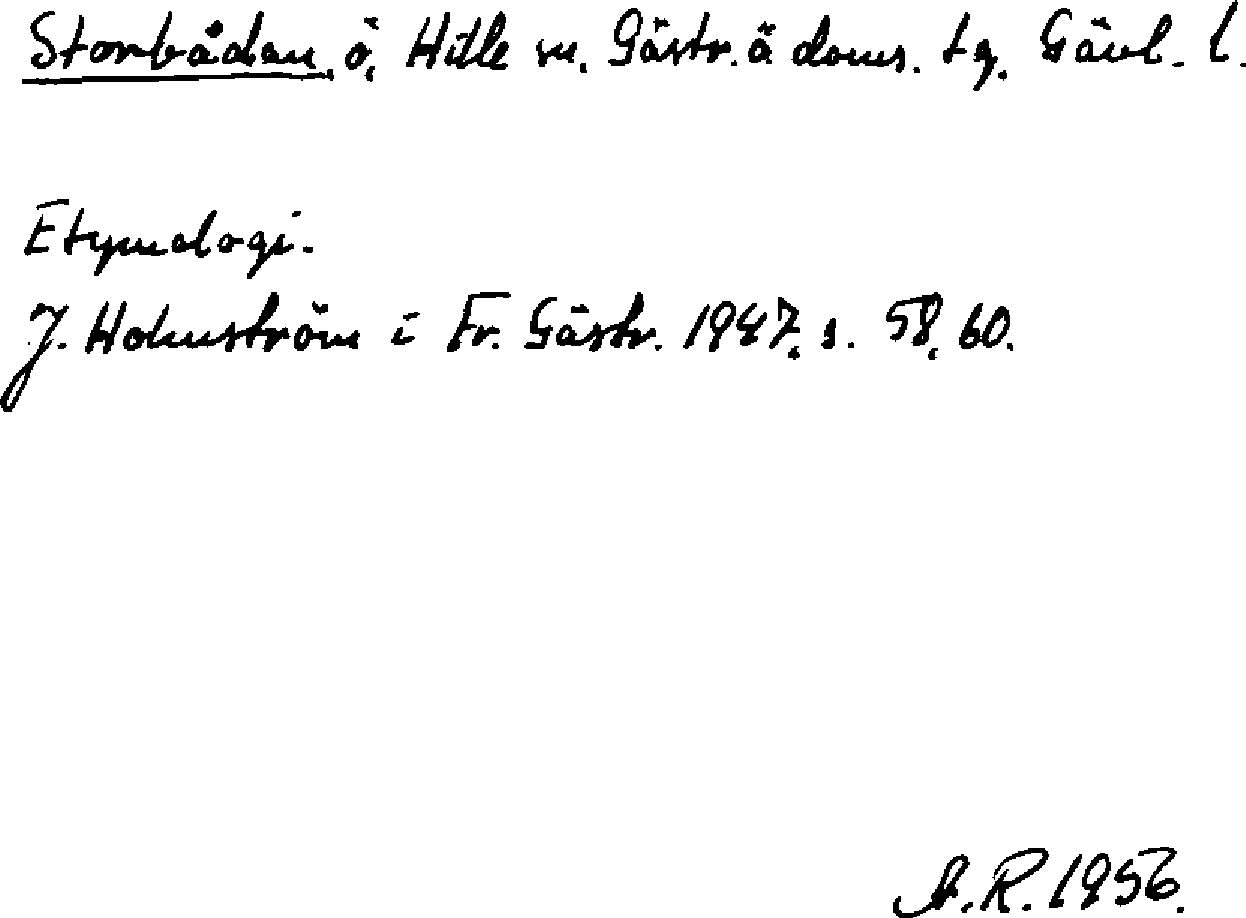 Storbådan, ö, Hille sn. Gästr. ö doms. tg. Gävl. l.
Etymologi.
J. Holmström i Fr. Gästr. 1947, s. 58, 60.
A.R. 1956.